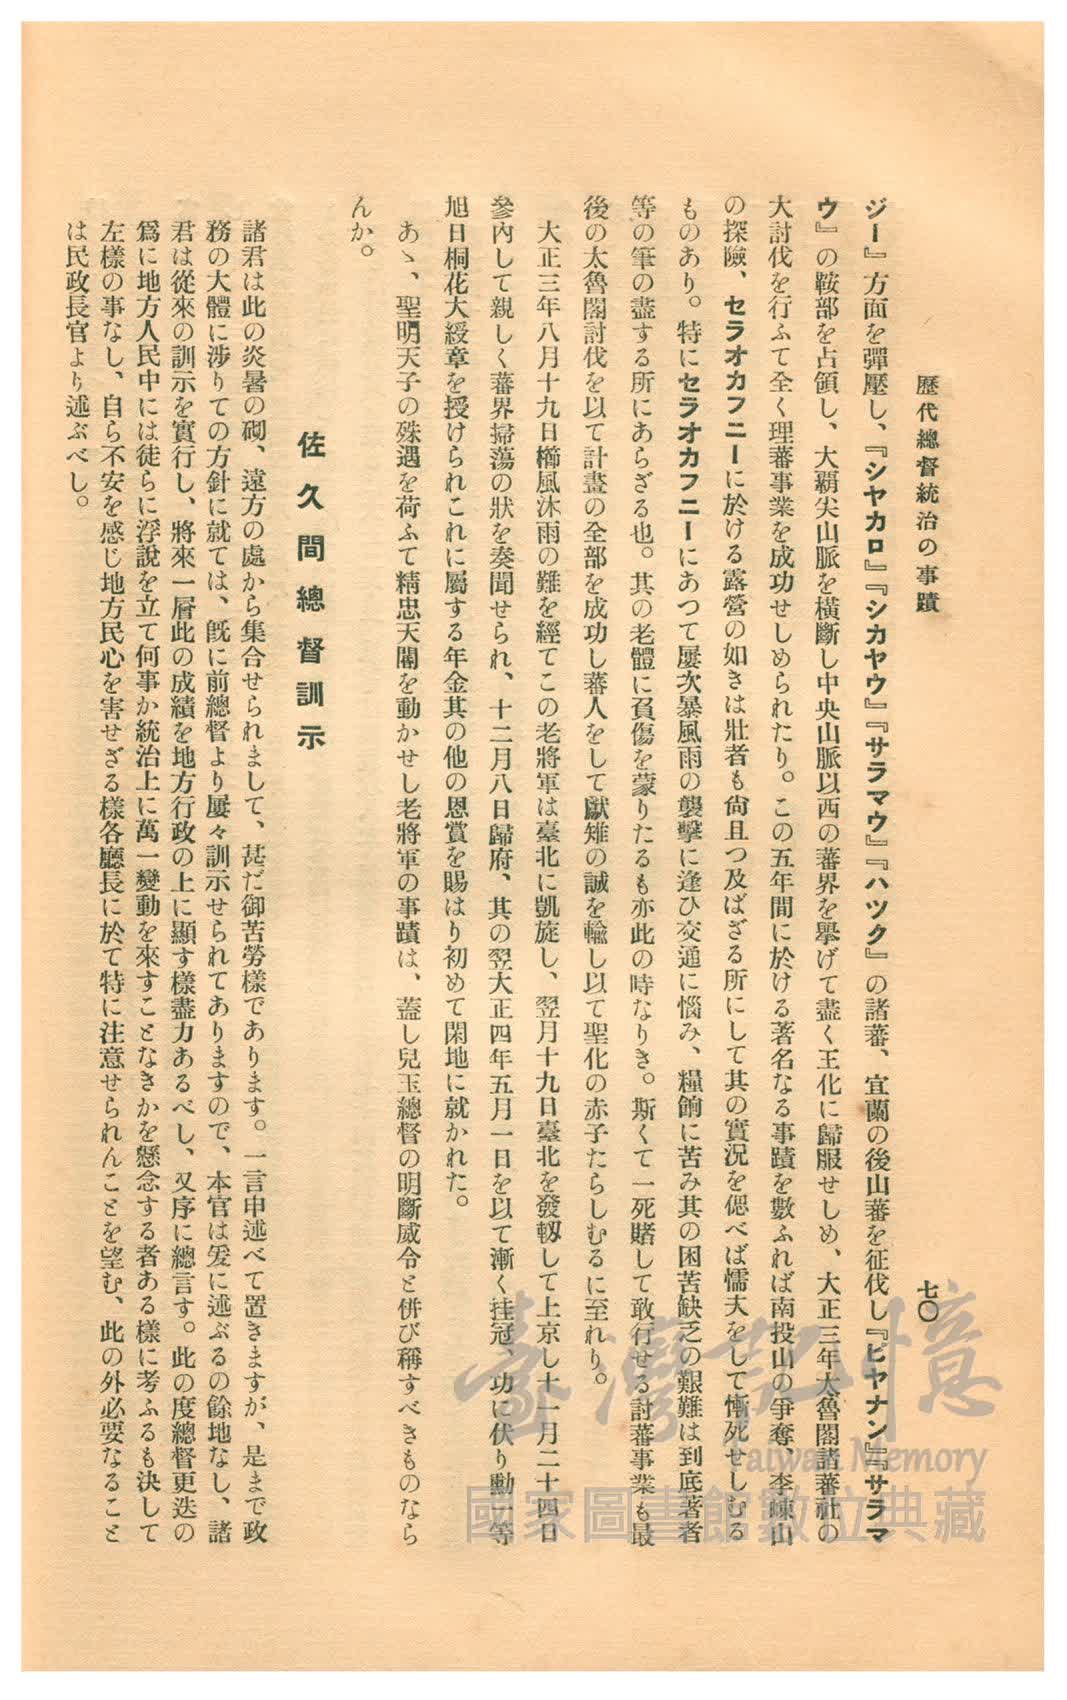 歷代總督統治の事蹟
七〇
ジー』方面を彈壓し、『シヤカロ』『シカヤウ』『サラマウ』『ハツク』の諸蕃、宜蘭の後山蕃を征伐し『ピヤナン』『サラマ
ウ』の鞍部を占領し、大覇尖山脈を橫斷し中央山脈以西の蕃界を擧げて盡く王化に歸服せしめ、大正三年大魯閣諸蕃社の
大討伐を行ふて全く理蕃事業を成功せしめられたり。この五年間に於ける著名なる事蹟を數ふれば南投山の爭奪、李崠山
の探險、セラオカフニーに於ける露營の如きは壯者も尙且つ及ばざる所にして其の實況を偲べば懦夫をして慚死せしむる
ものあり。特にセラオカフニーにあつて屢次暴風雨の襲擊に逢ひ交通に惱み、糧餉に苦み其の困苦缺乏の艱難は到底著者
等の筆の盡する所にあらざる也。其の老體に負傷を蒙りたるも亦此の時なりき。斯くて一死賭して敢行せる討蕃事業も最
後の太魯閣討伐を以て計畫の全部を成功し蕃人をして獻雉の誠を輸し以て聖化の赤子たらしむるに至れり。
大正三年八月十九日櫛風沐雨の難を經てこの老將軍は臺北に凱旋し、翌月十九日臺北を發軔して上京し十一月二十四日
參內して親しく蕃界掃蕩の狀を奏聞せられ、十二月八日歸府、其の翌大正四年五月一日を以て漸く挂冠、功に伏り勳一等
旭日桐花大綬章を授けられこれに屬する年金其の他の恩賞を賜はり初めて閑地に就かれた。
あゝ、聖明天子の殊遇を荷ふて精忠天閽を動かせし老將軍の事蹟は、蓋し兒玉總督の明斷威令と併び稱すべきものなら
んか。
佐久間總督訓示
諸君は此の炎暑の砌、遠方の處から集合せられまして、甚だ御苦勞樣であります。一言申述べて置きますが、是まで政
務の大體に涉りての方針に就ては、旣に前總督より屢々訓示せられてありますので、本官は爰に述ぶるの餘地なし、諸
君は從來の訓示を實行し、將來一層此の成績を地方行政の上に顯す樣盡力あるべし、又序に總言す。此の度總督更迭の
爲に地方人民中には徒らに浮說を立て何事か統治上に萬一變動を來すことなきかを懸念する者ある樣に考ふるも決して
左樣の事なし、自ら不安を感じ地方民心を害せざる樣各廳長に於て特に注意せられんことを望む、此の外必要なること
は民政長官より述ぶべし。
臺灣記憶
Taiwan Memory
國家圖書館數位典藏